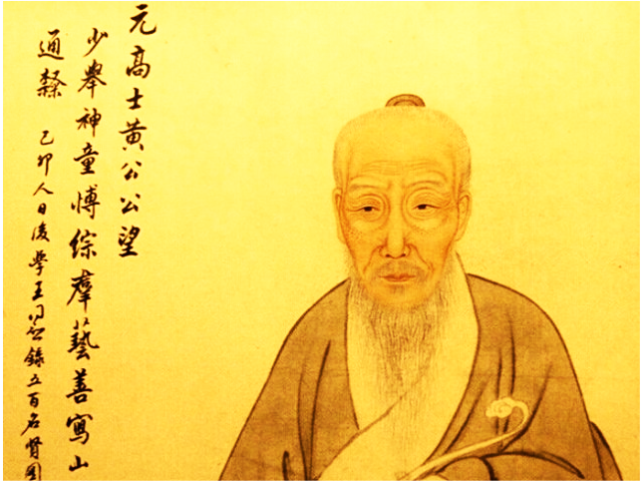 元高士黃公公望
少舉神童愽綜羣藝善寫山
通 己卯人日後學王同愈錄五百名賢圖